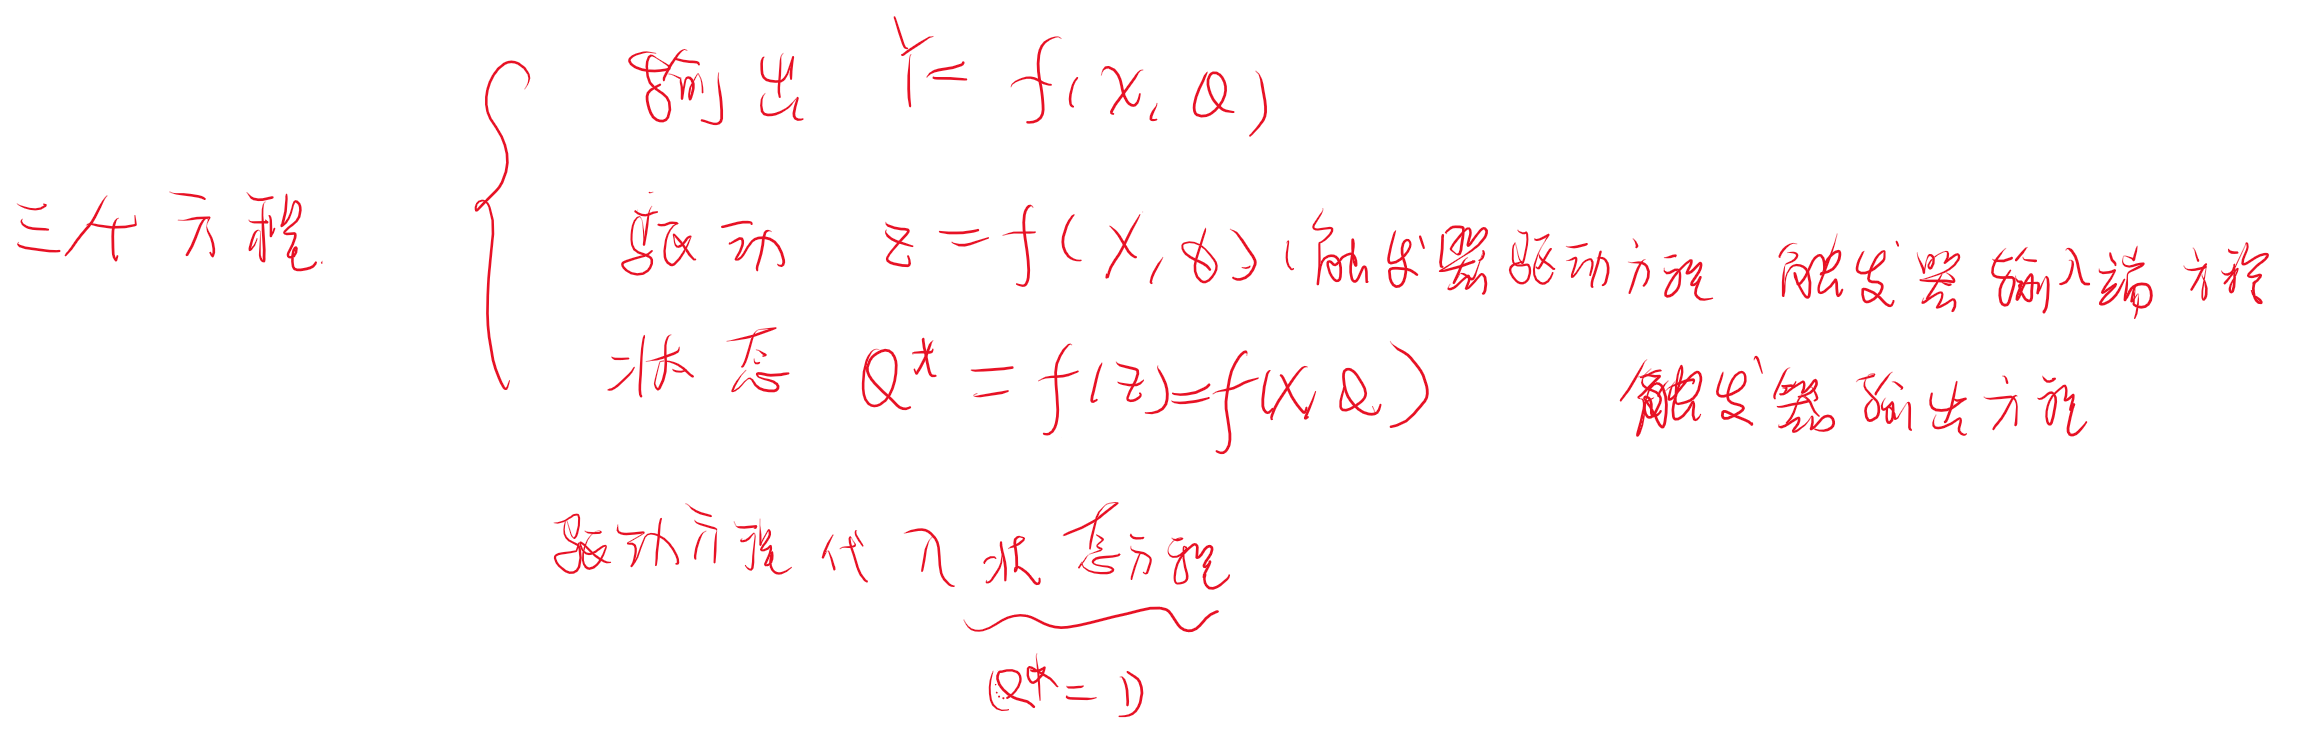 三个方程
输出 Y = f(X, Q)
驱动 Z = f(X, Q) (触发器驱动方程 触发器输入端方程
状态 Q* = f(Z) = f(X, Q) 触发器输出方程
驱动方程代入状态方程
(Q* = )